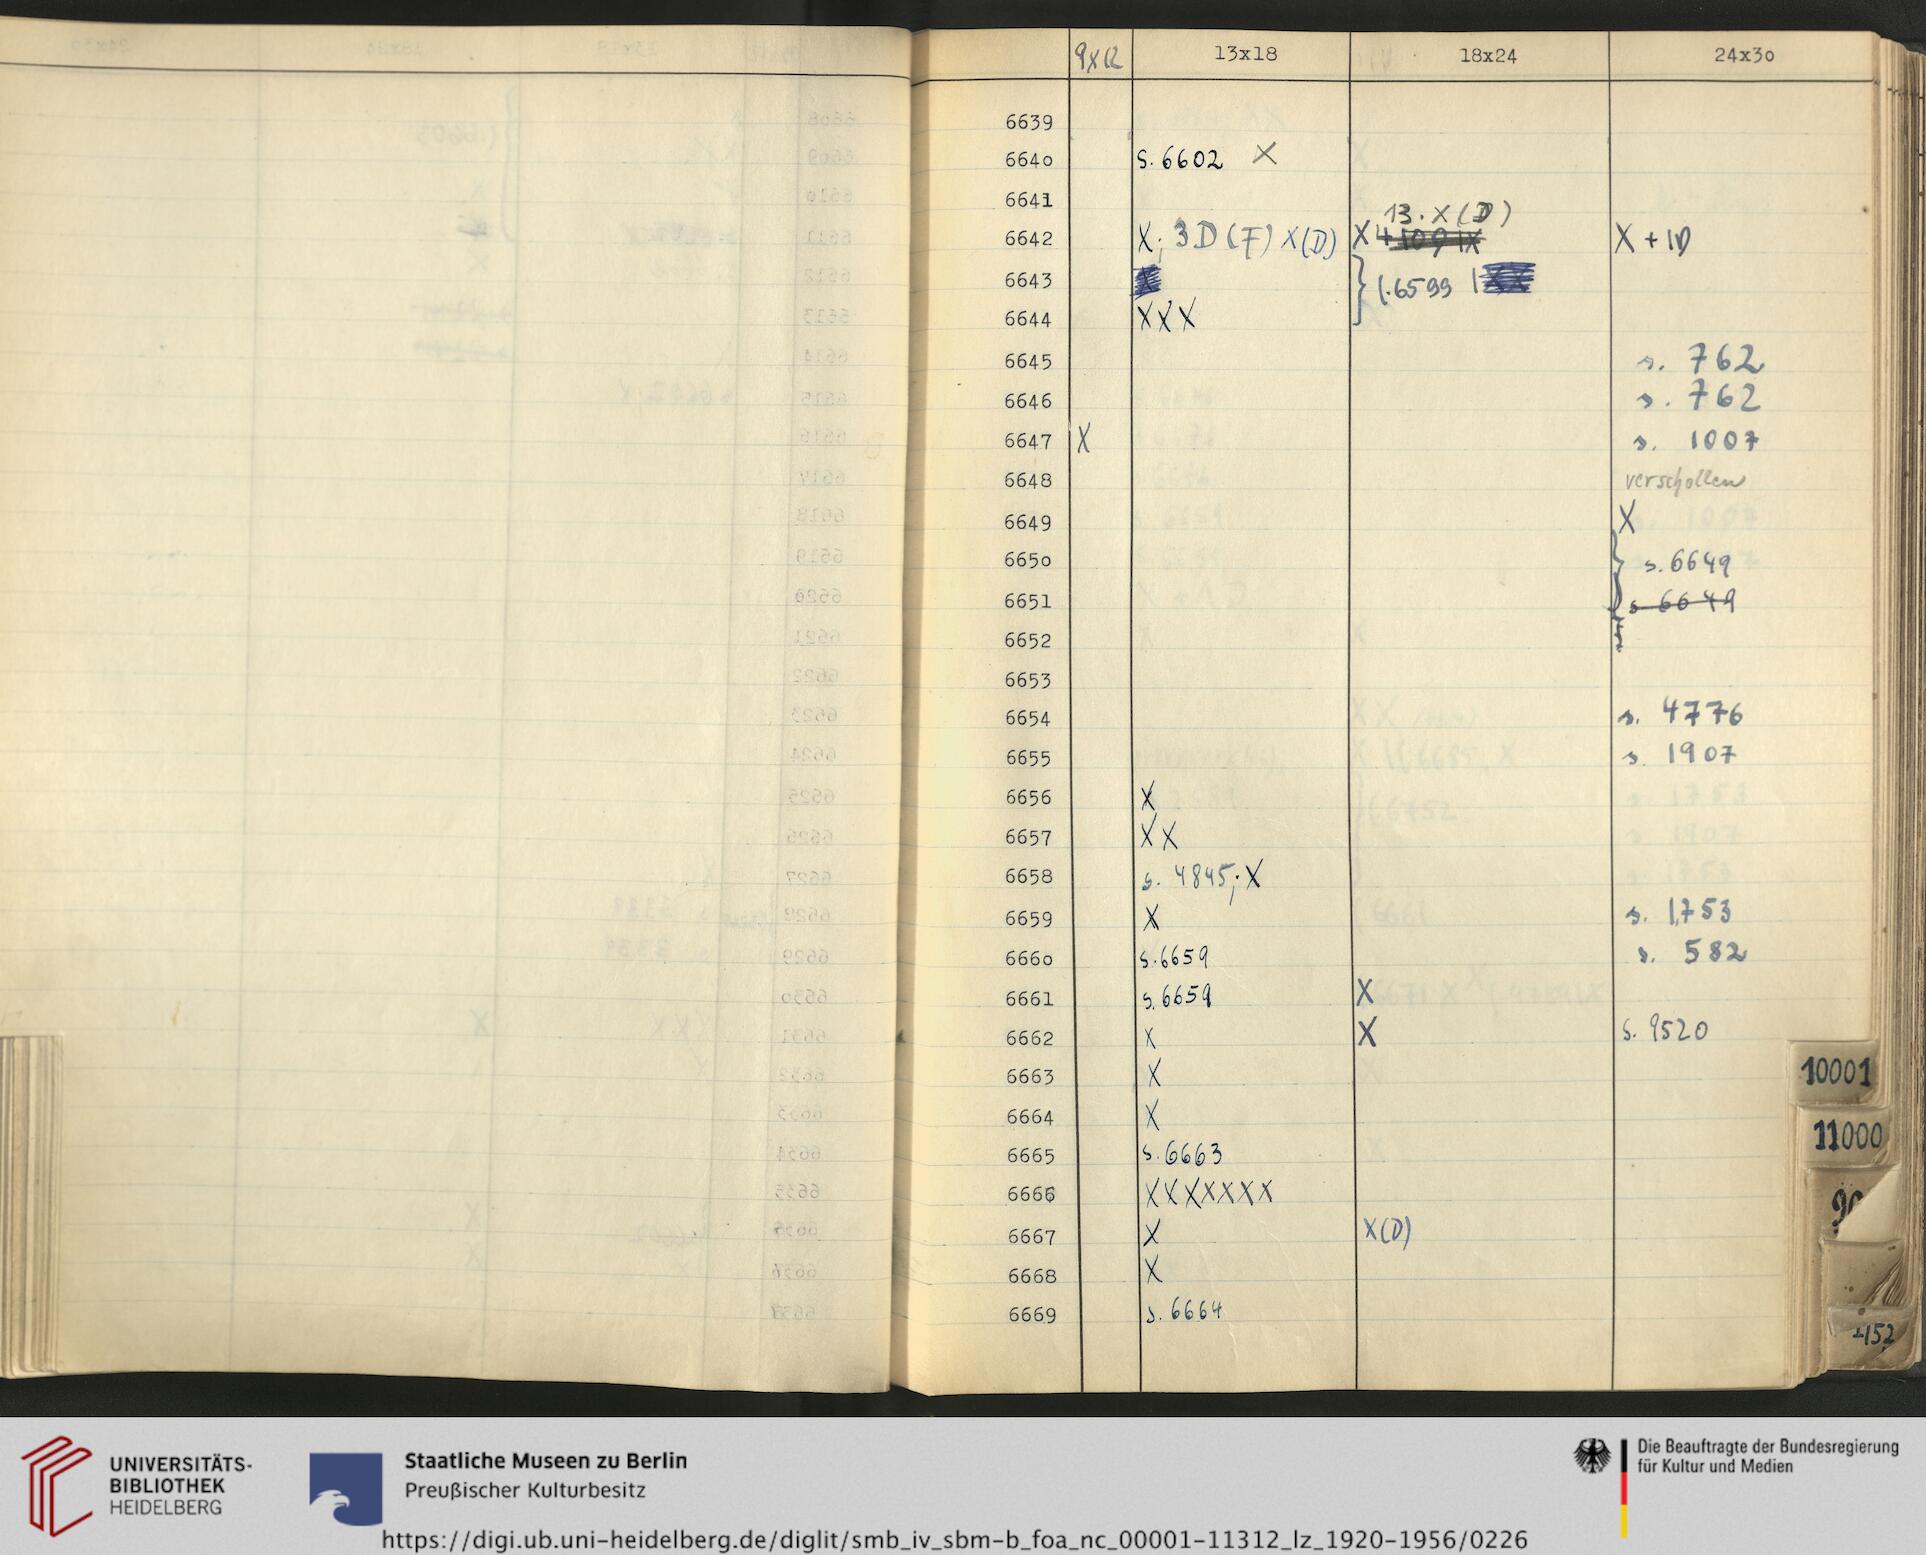 9x12 13x18 18x24 24x30
6639
6640 s. 6602 X
6641
13. X (D)
6642 X; 3D (F) X(D) X X + 1D
6643 6599
6644 XXX
6645 s. 762
6646 s. 762
6647 X s. 1007
6648 verschollen
6649 X
6650 s. 6649
6651 s 6649
6652
6653
6654 s. 4776
6655 s. 1907
6656 X
6657 XX
6658 s. 4845; X
6659 X s. 1753
6660 s. 6659 s. 582
6661 s. 6659 X
6662 X X s. 9520
6663 X
10001
6664 X
11000
6665 s. 6663
6666 XXXXXXX
6667 X X(D)
6668 X
6669 s. 6664
UNIVERSITÄTS-
BIBLIOTHEK
HEIDELBERG
Staatliche Museen zu Berlin
Preußischer Kulturbesitz
Die Beauftragte der Bundesregierung
für Kultur und Medien
https://digi.ub.uni-heidelberg.de/diglit/smb_iv_sbm-b_foa_nc_00001-11312_lz_1920-1956/0226